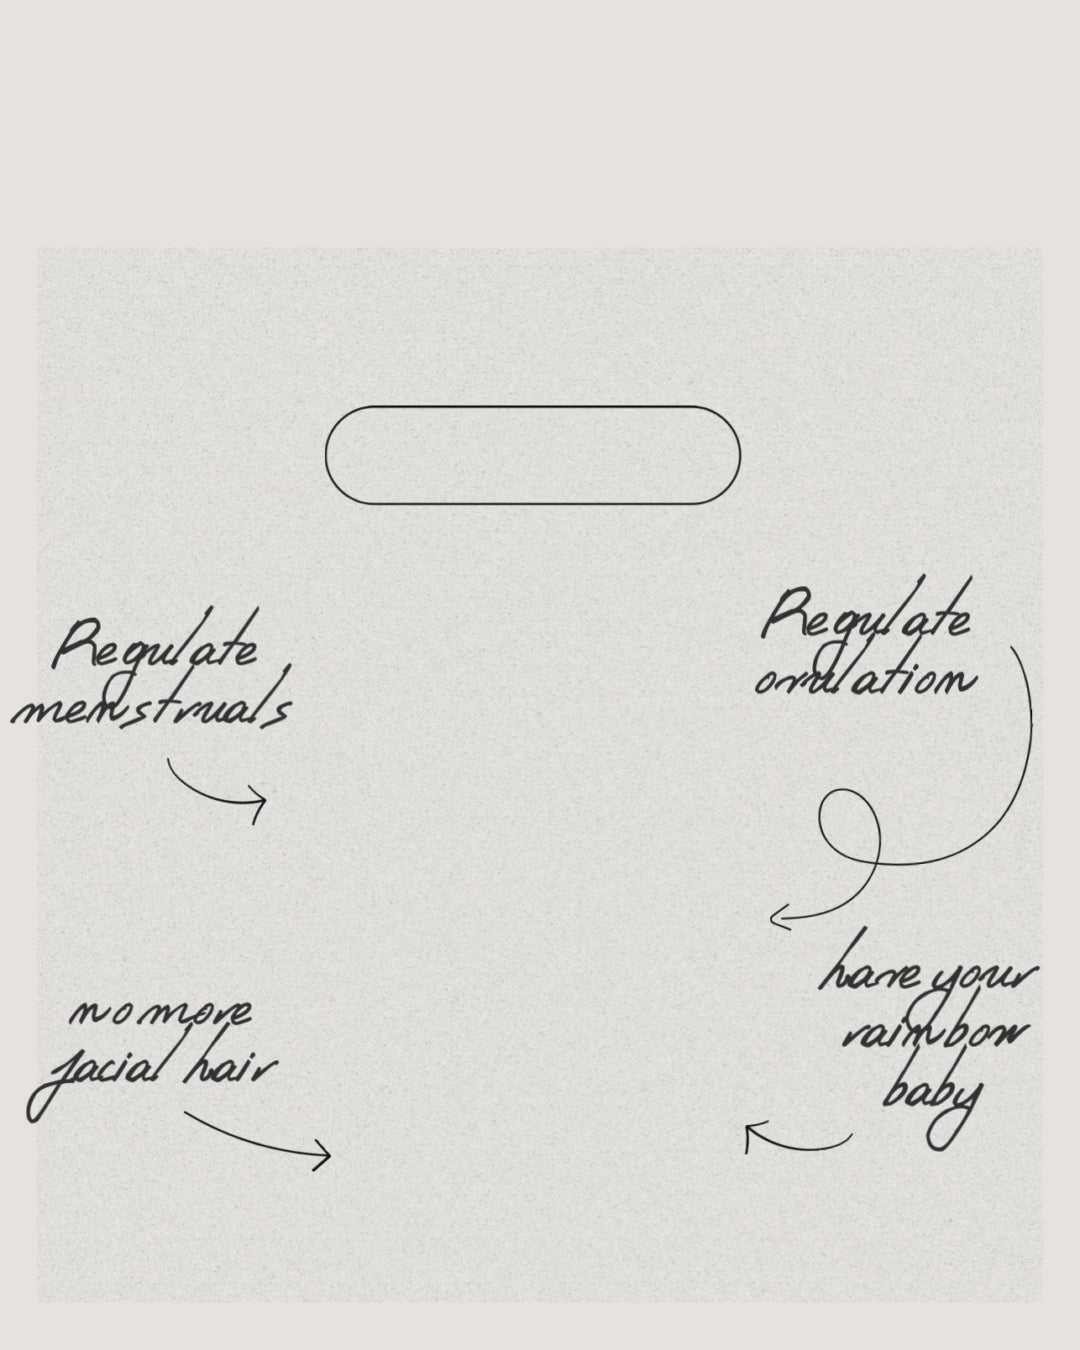 Regulate
menstruals
Regulate
ovulation
no more
facial hair
have your
rainbow
baby